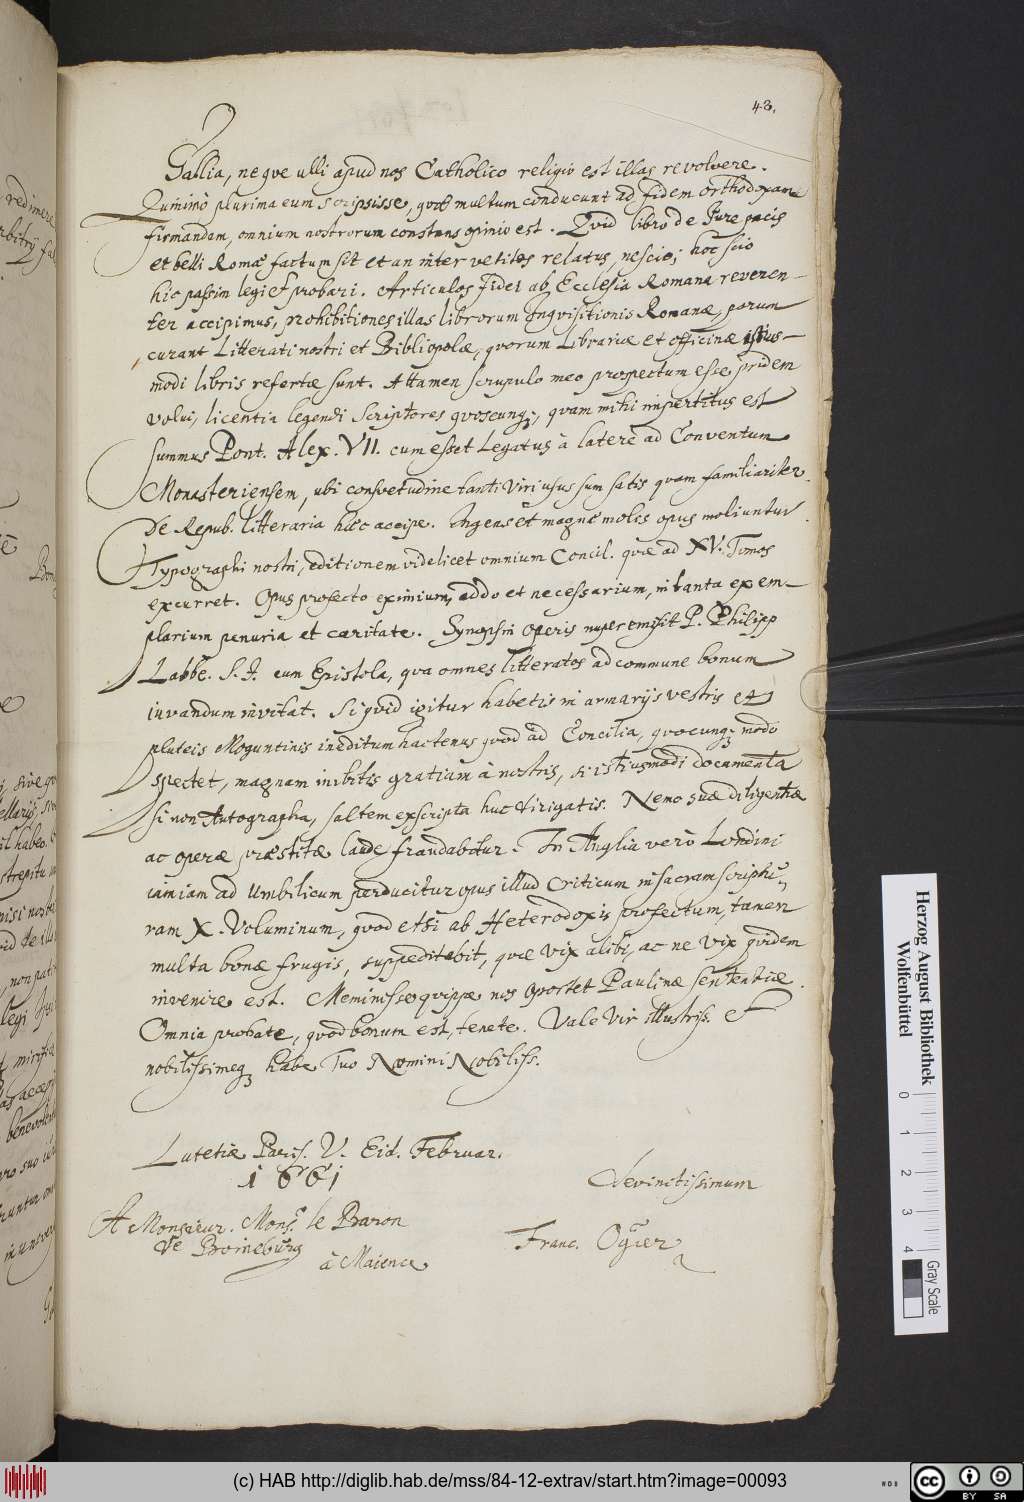 43.
Gallia, neque ulli apud nos Catholico religio est illas revolvere.
Quiminò plurima eum scripsisse, quæ multum conducunt ad fidem orthodoxam
firmandam, omnium nostrorum constans opinio est. Quid libro de Jure pacis
et belli Romæ factum sit et an inter vetitos relatus, nescio; hoc scio
hic passim legi et probari. Articulos Fidei ab Ecclesia Romana reveren-
ter accipimus, prohibitiones illas librorum Inquisitionis Romanæ, parum
curant Litterati nostri et Bibliopolæ, quorum Librariæ et officinæ istius-
modi libris refertæ sunt. Attamen scrupulo meo prospectum esse pridem
volui, licentia legendi Scriptores quoscunq;, quam mihi impertitus est
summus Pont. Alex. VII. cum esset Legatus à latere ad Conventum
Monasteriensem, ubi consvetudine tanti Viri usus sum satis quam familiariter.
De Repub. litteraria hæc accipe. Ingens et magnæ molis opus moliuntur
Typographi nostri, editionem videlicet omnium Concil. quæ ad XV. Tomos
excurret. Opus profecto eximium, addo et necessarium, in tanta exem-
plarium penuria et caritate. Synopsin operis nuper emisit P. Philipp
Labbe. S. J. cum Epistola, qua omnes litteratos ad commune bonum
iuvandum invitat. Si quid igitur habetis in armarijs vestris et
pluteis Moguntinis ineditum hactenus quod ad Concilia, quocunq; modo
spectet, magnam inibitis gratiam à nostris, si istiusmodi documenta
si non Autographa, saltem exscripta huc dirigatis. Nemo suæ diligentiæ
ac operæ præstitæ laude fraudabitur. In Anglia verò Londini
iamiam ad umbilicum perducitur opus illud Criticum in sacram scriptu-
ram X. Voluminum, quod etsi ab Heterodoxis profectum, tamen
multa bonæ frugis, suppeditabit, quæ vix alibi, ac ne vix quidem
invenire est. Meminisse quippe nos oportet Paulinæ sententiæ.
Omnia probate, quod bonum est, tenete. Vale Vir illustriss. et
nobilissimeq; habe Tuo Nomini Nobiliss.
Lutetiæ Paris. V. Eid. Februar.
1661
devinctissimum
A Monsieur. Mons.r le Baron
de Boineburg
à Maience
Franc. Ogier
Herzog August Bibliothek
Wolfenbüttel
0 1 2 3 4
Gray Scale
(c) HAB http://diglib.hab.de/mss/84-12-extrav/start.htm?image=00093
cc BY SA